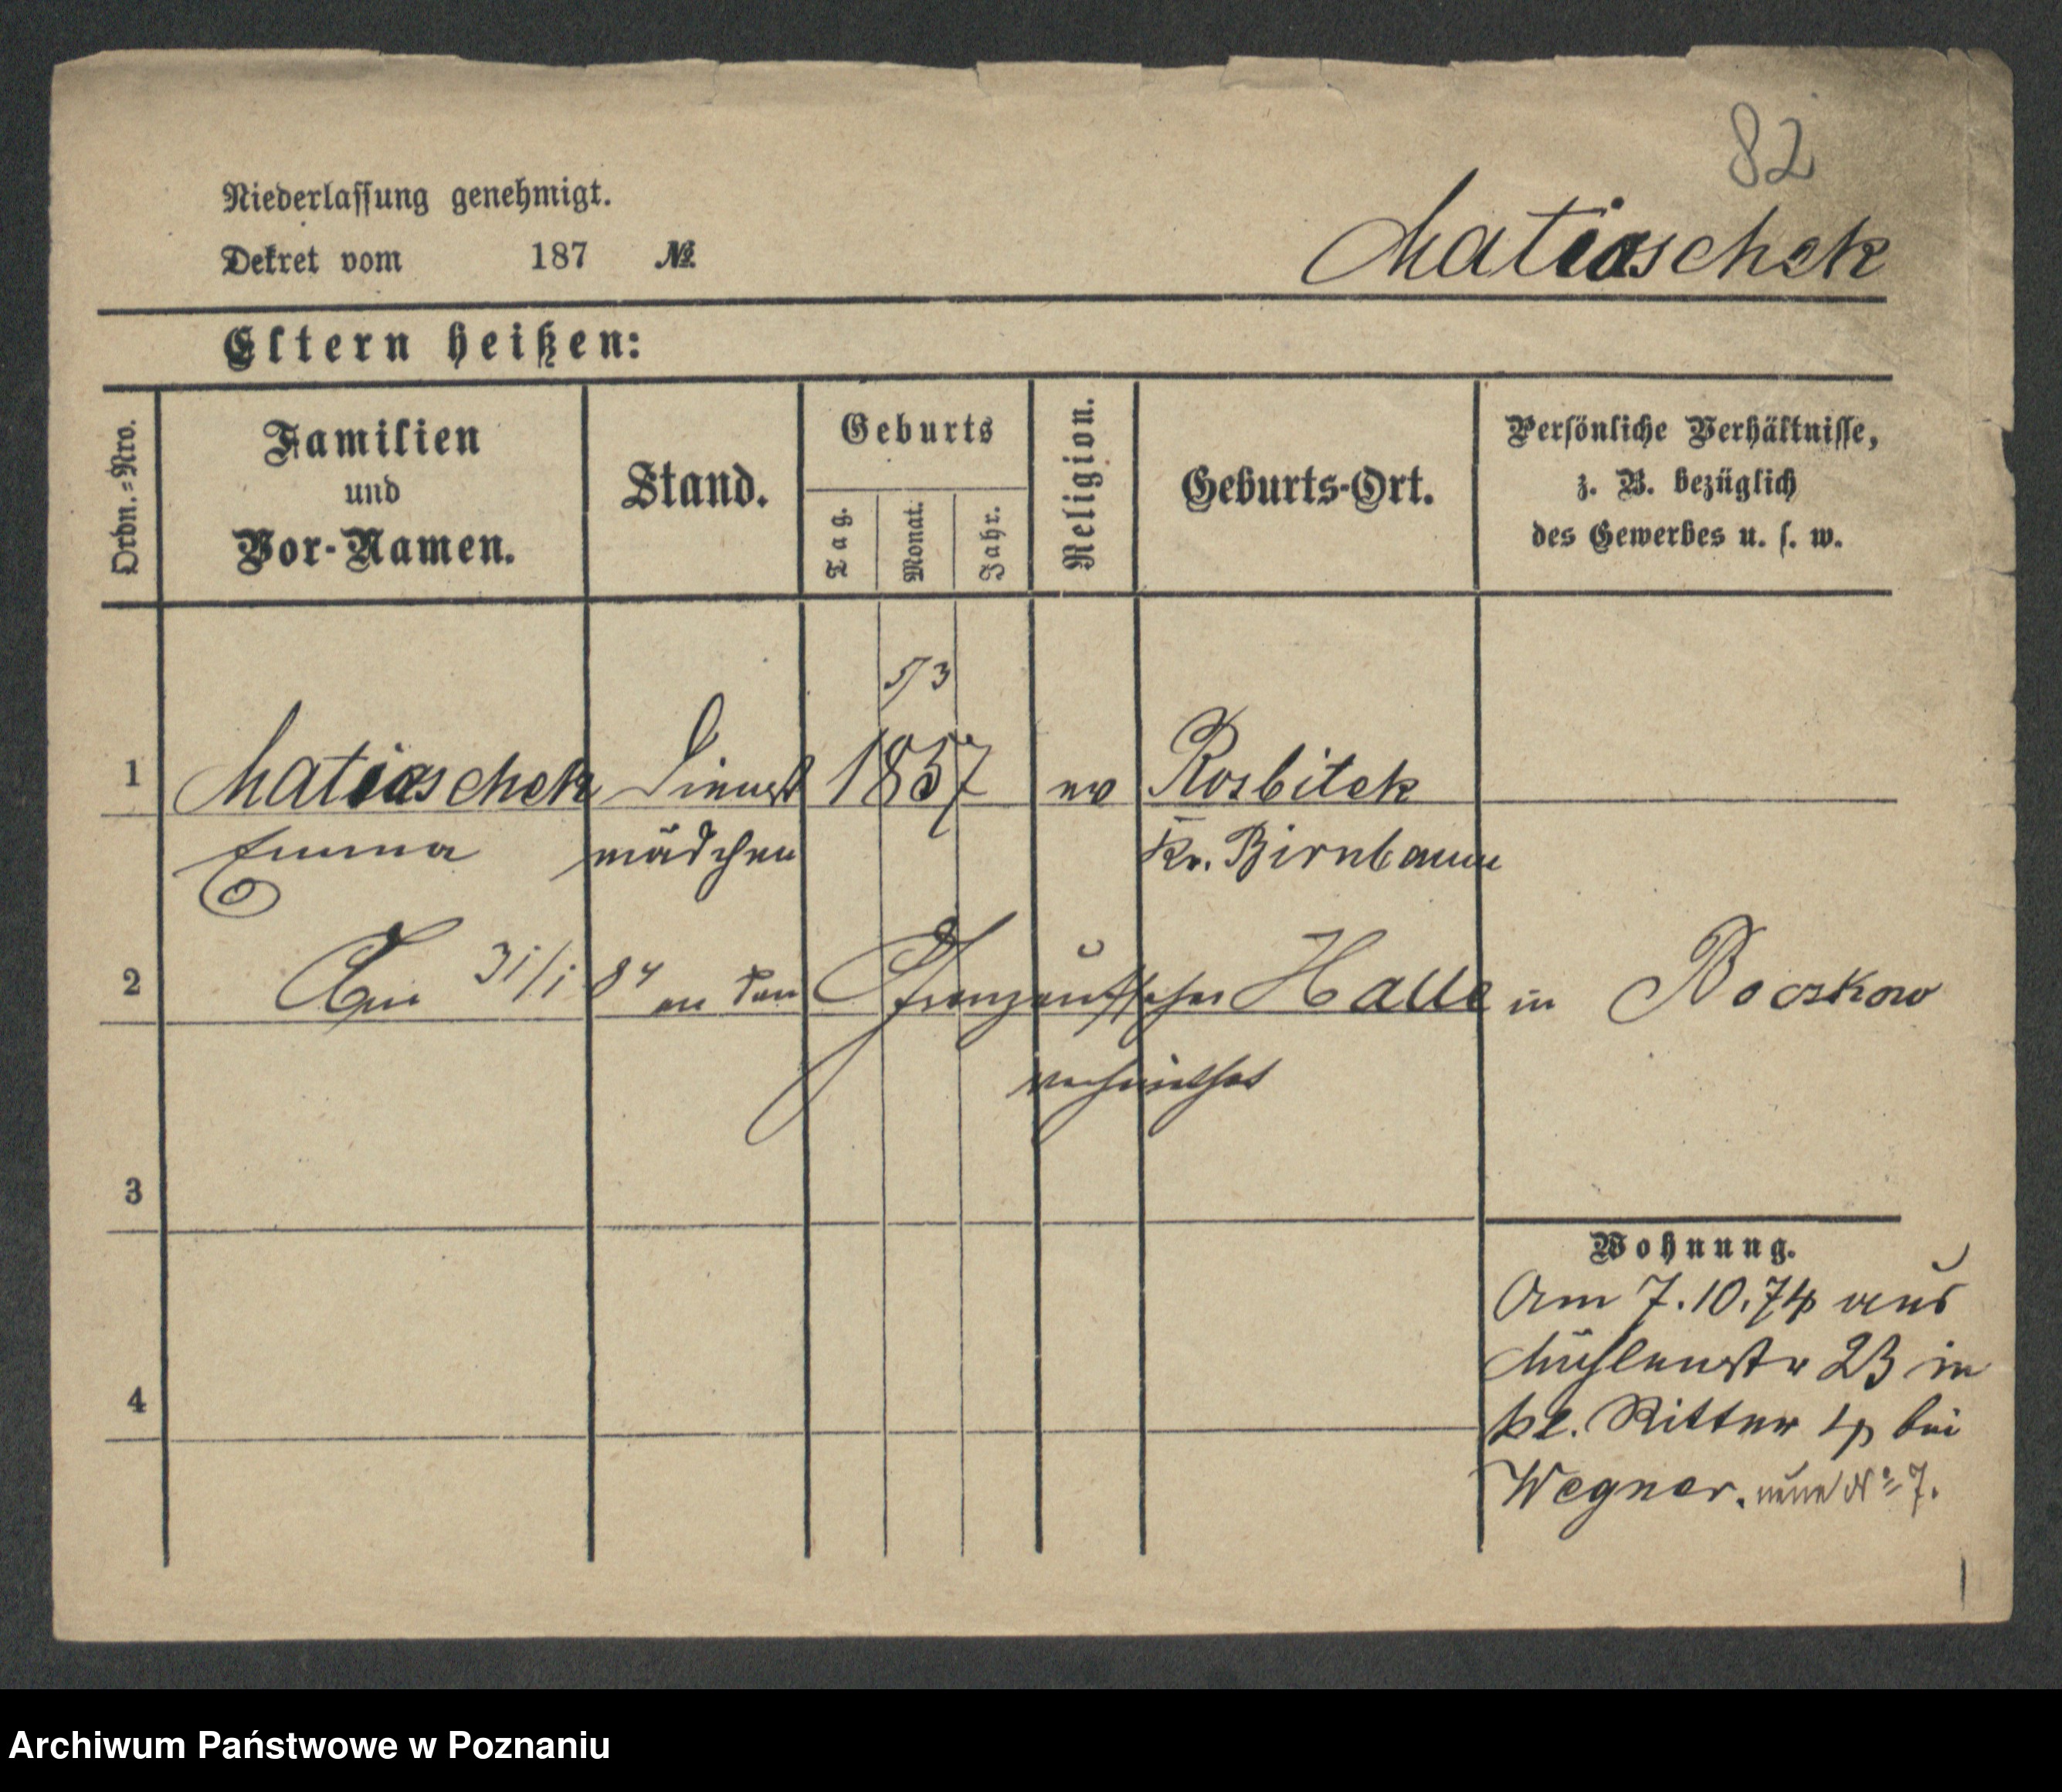 82
Niederlassung genehmigt.
Dekret vom 187 №
Matiaschek
Eltern heißen:
Ordn.=Nro.
Familien
und
Vor-Namen.
Stand.
Geburts
Tag.
Monat.
Jahr.
Religion.
Geburts-Ort.
Persönliche Verhältnisse,
z. B. bezüglich
des Gewerbes u. s. w.
5/3
1 Matiaschek Dienst 1857 ev Rosbitek
Emma mädchen Kr. Birnbaum
2 Am 31/1 84 an den Grenzaufseher Halle in Boczkow
verheirathet
3
Wohnung.
Am 7.10.74 aus
Mühlenstr 23 in
kl. Ritter 4 bei
4
Wegner. neue N° 7.
Archiwum Państwowe w Poznaniu